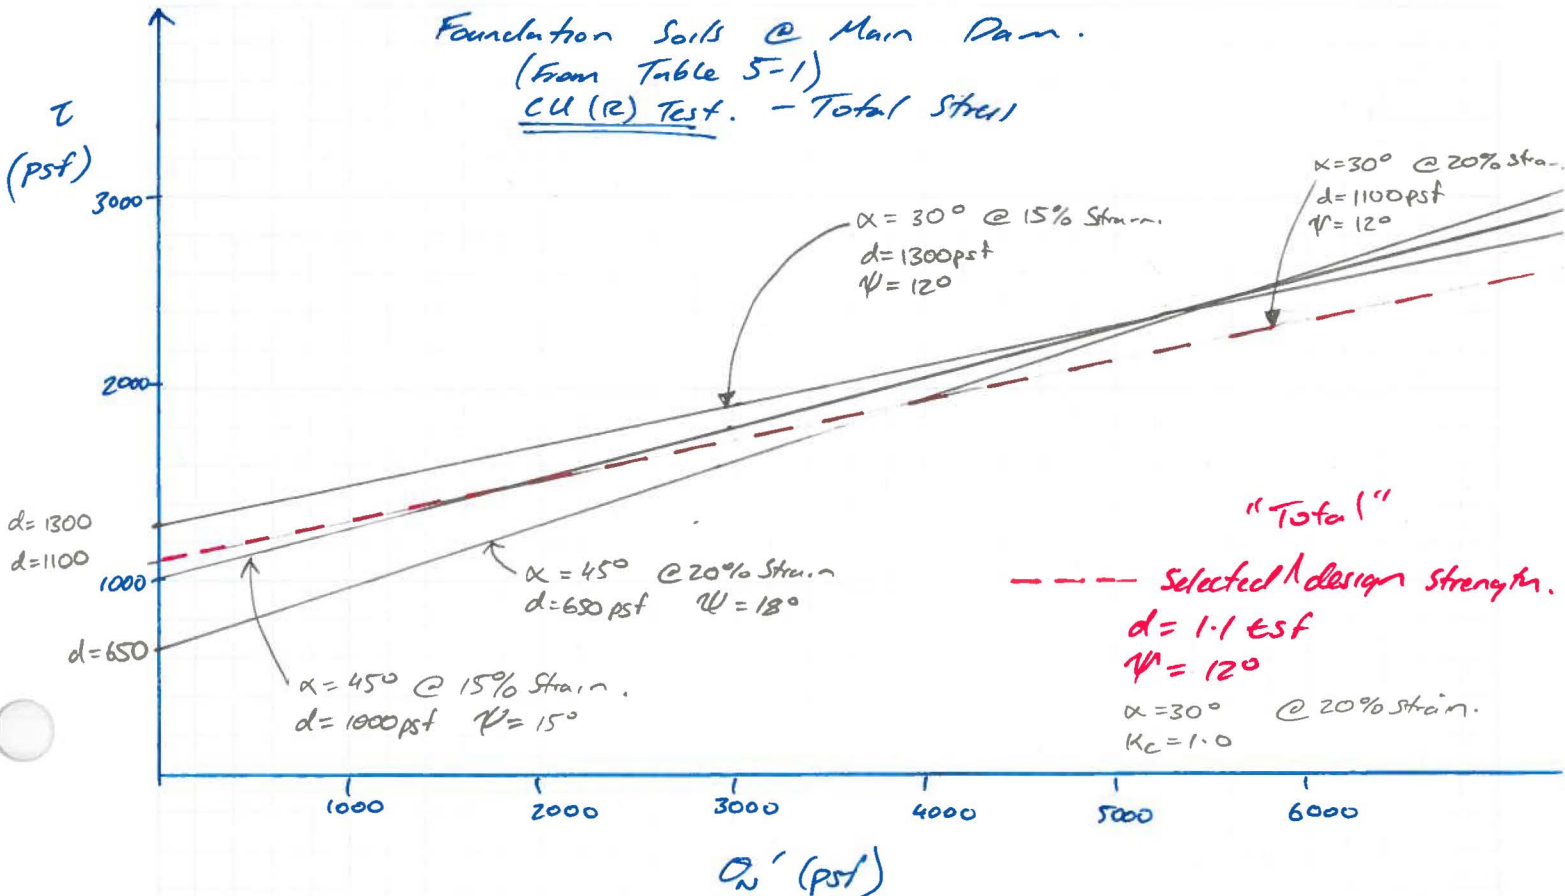 Foundation Soils @ Main Dam.
(From Table 5-1)
CU (R) Test. - Total Stress
τ
(psf)
3000
2000
1000
α = 30° @ 20% Stra-.
d = 1100 psf
Ψ = 12°
α = 30° @ 15% Strain.
d = 1300 psf
Ψ = 12°
d = 1300
d = 1100
d = 650
α = 45° @ 20% Strain
d = 650 psf Ψ = 18°
α = 45° @ 15% Strain.
d = 1000 psf Ψ = 15°
"Total"
Selected ∧ design strength.
d = 1.1 tsf
Ψ = 12°
α = 30° @ 20% Strain.
Kc = 1.0
1000 2000 3000 4000 5000 6000
σN' (psf)